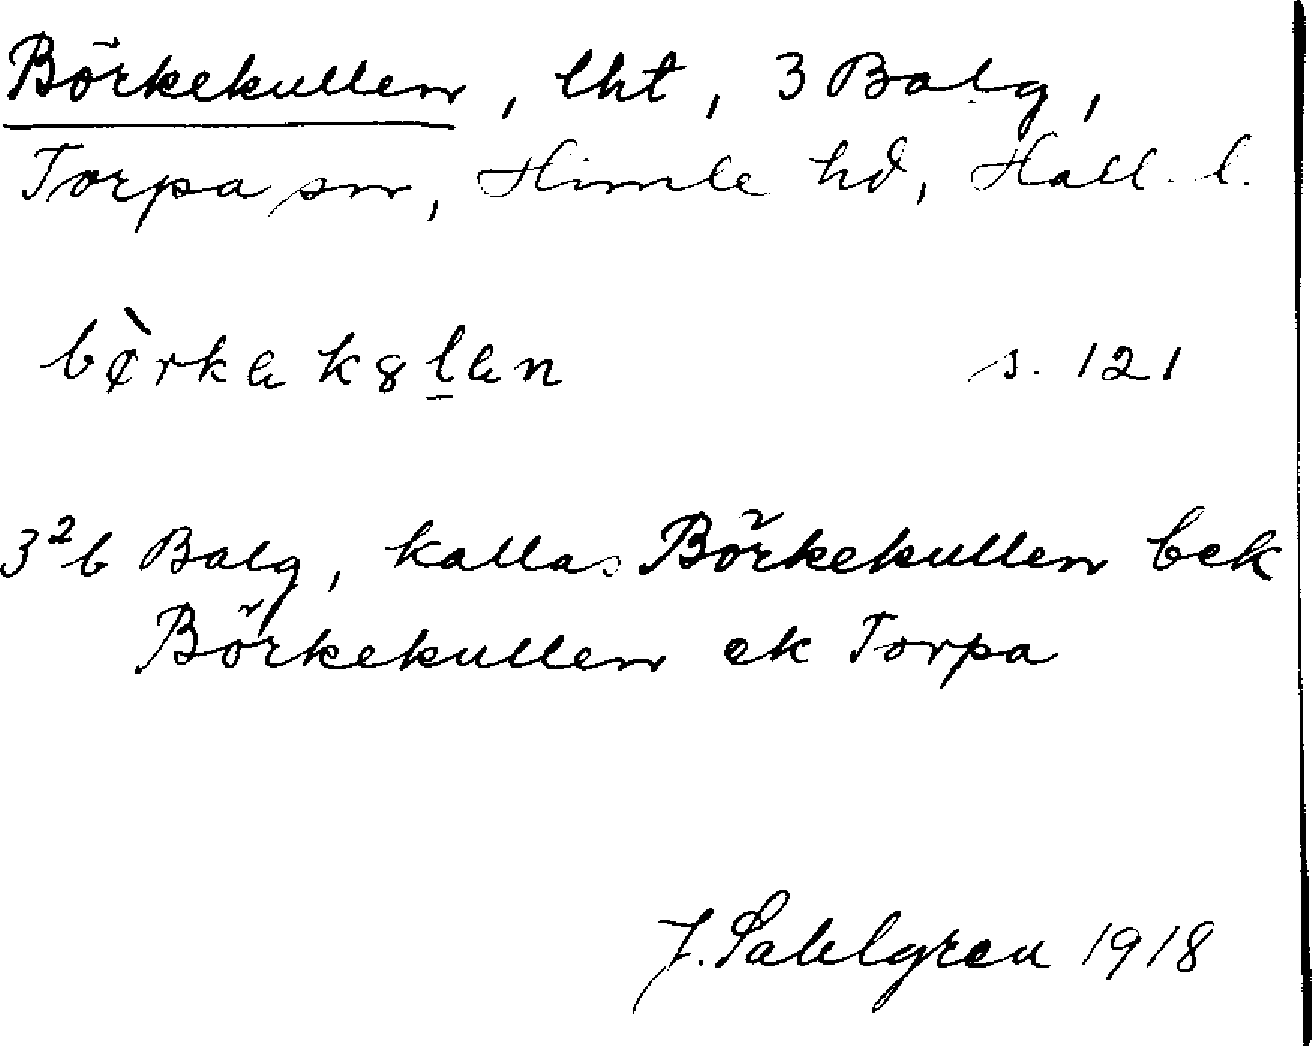 Börkekullen, lht, 3 Balg,
Torpa sn, Himle hd, Hall. l.
bø̀rkak8l̲an s. 121
3²b Balg, kallas Börkekullen bek
Börkekullen ek Torpa
J. Sahlgren 1918